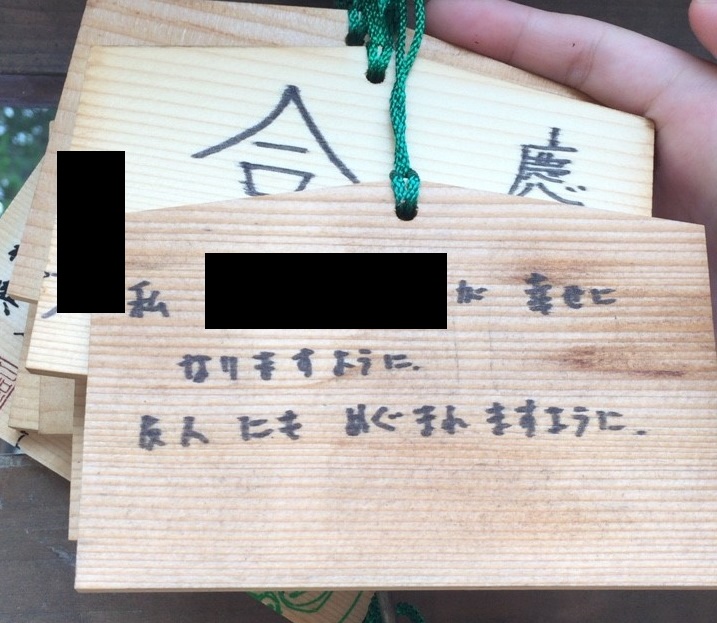 合
慶
私 が 幸せに
なりますように.
友人にも めぐまれますように.